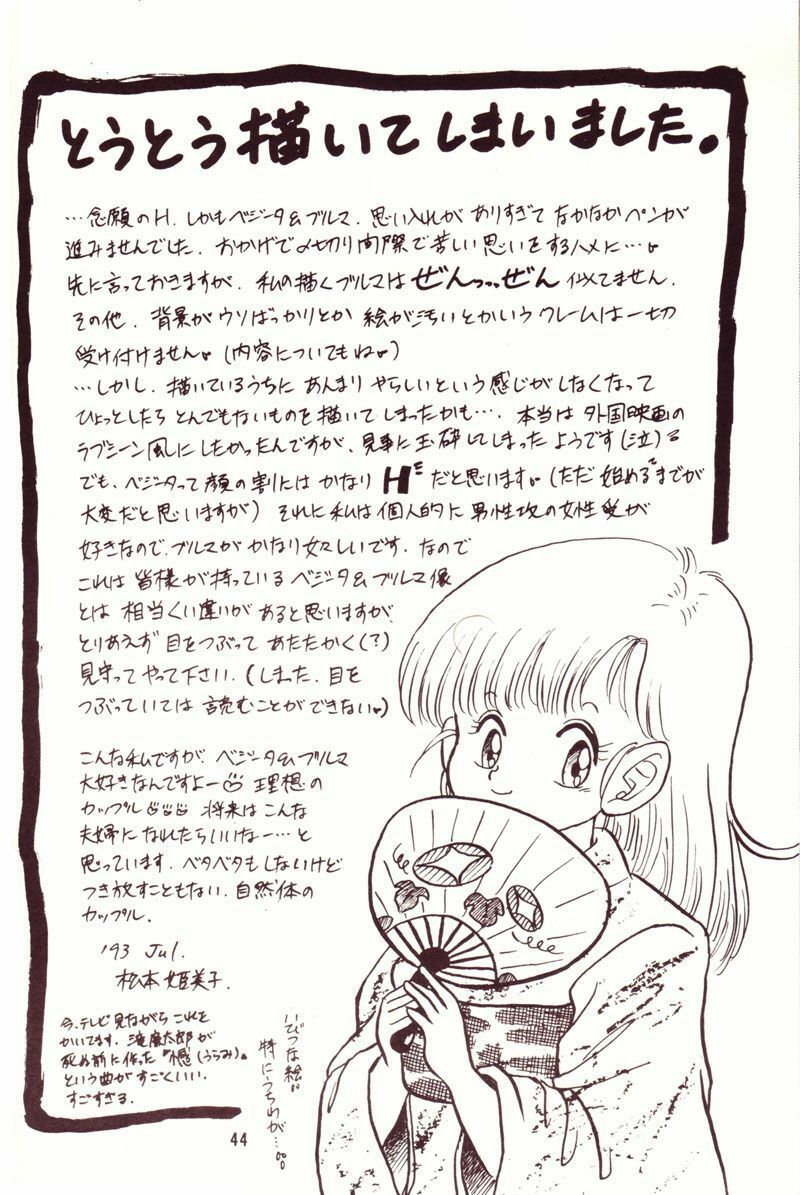 とうとう描いてしまいました。
…念願のH. しかもベジータ&ブルマ. 思い入れが ありすぎて なかなかペンが
進みませんでした. おかげで〆切り間際で苦しい思いをするハメに…。
先に言っておきますが. 私の描くブルマは ぜんっっぜん 似てません.
その他. 背景が ウソばっかりとか 絵が汚いとかいう クレームは 一切
受け付けません。(内容についてもね。)
…しかし. 描いているうちに あんまり やらしいという 感じが しなくなって
ひょっとしたら とんでもないものを 描いて しまったかも…. 本当は 外国映画の
ラブシーン風にしたかったんですが、見事に玉砕してしまったようです(泣)
でも、ベジータって顔の割には かなり H だと思います。(ただ 始めるまでが
大変だと思いますが) それに私は個人的に 男性攻の女性受が
好きなので、ブルマが かなり女々しいです. なので
これは 皆様が持っている ベジータ&ブルマ像
とは 相当くい違いが あると思いますが
とりあえず 目をつぶって あたたかく(?)
見守ってやって下さい. (しまった. 目を
つぶっていては 読むことができない。)
こんな私ですが、ベジータ&ブルマ
大好きなんですよー 理想の
カップル 将来は こんな
夫婦に なれたらいいなー…と
思っています. ベタベタもしないけど
つき放すこともない. 自然体の
カップル.
'93 Jul.
松本 姫美子.
今、テレビ 見ながら これを
かいてます. 滝廉太郎が
死ぬ前に作った『憾(うらみ)』
という曲が すごくいい.
すごすぎる.
いびつな絵。
特にうちわが…。
44